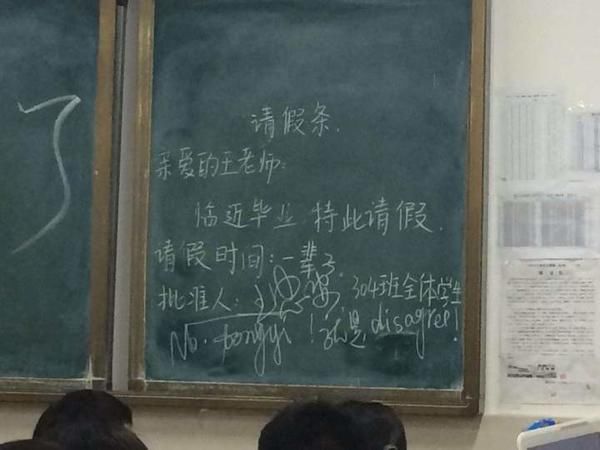 了
请假条.
亲爱的王老师:
临近毕业,持此请假.
请假时间:一辈子.
批准人: 304班全体学生
No. tongyi! 就是 disagree!